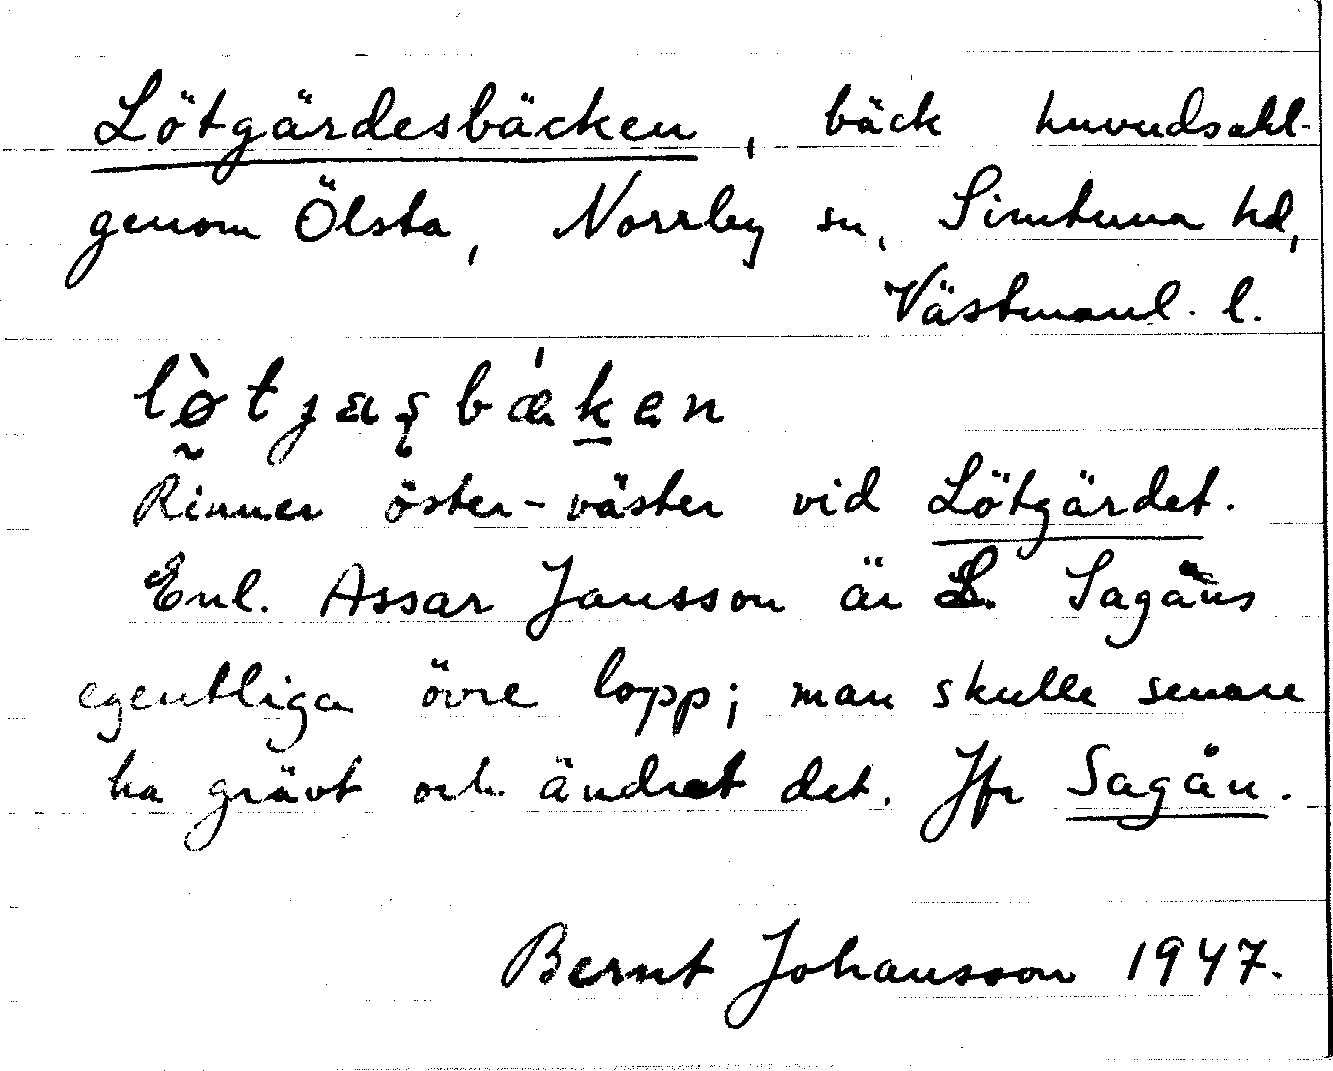 Lötgärdesbäcken, bäck huvudsakl.
genom Ölsta, Norrby sn, Simtuna hd,
Västmanl. l.
Rinner öster-väster vid Lötgärdet.
Enl. Assar Jansson är L. Sagåns
egentliga övre lopp; man skulle senare
ha grävt och ändrat det. Jfr Sagån.
Bernt Johansson 1947.